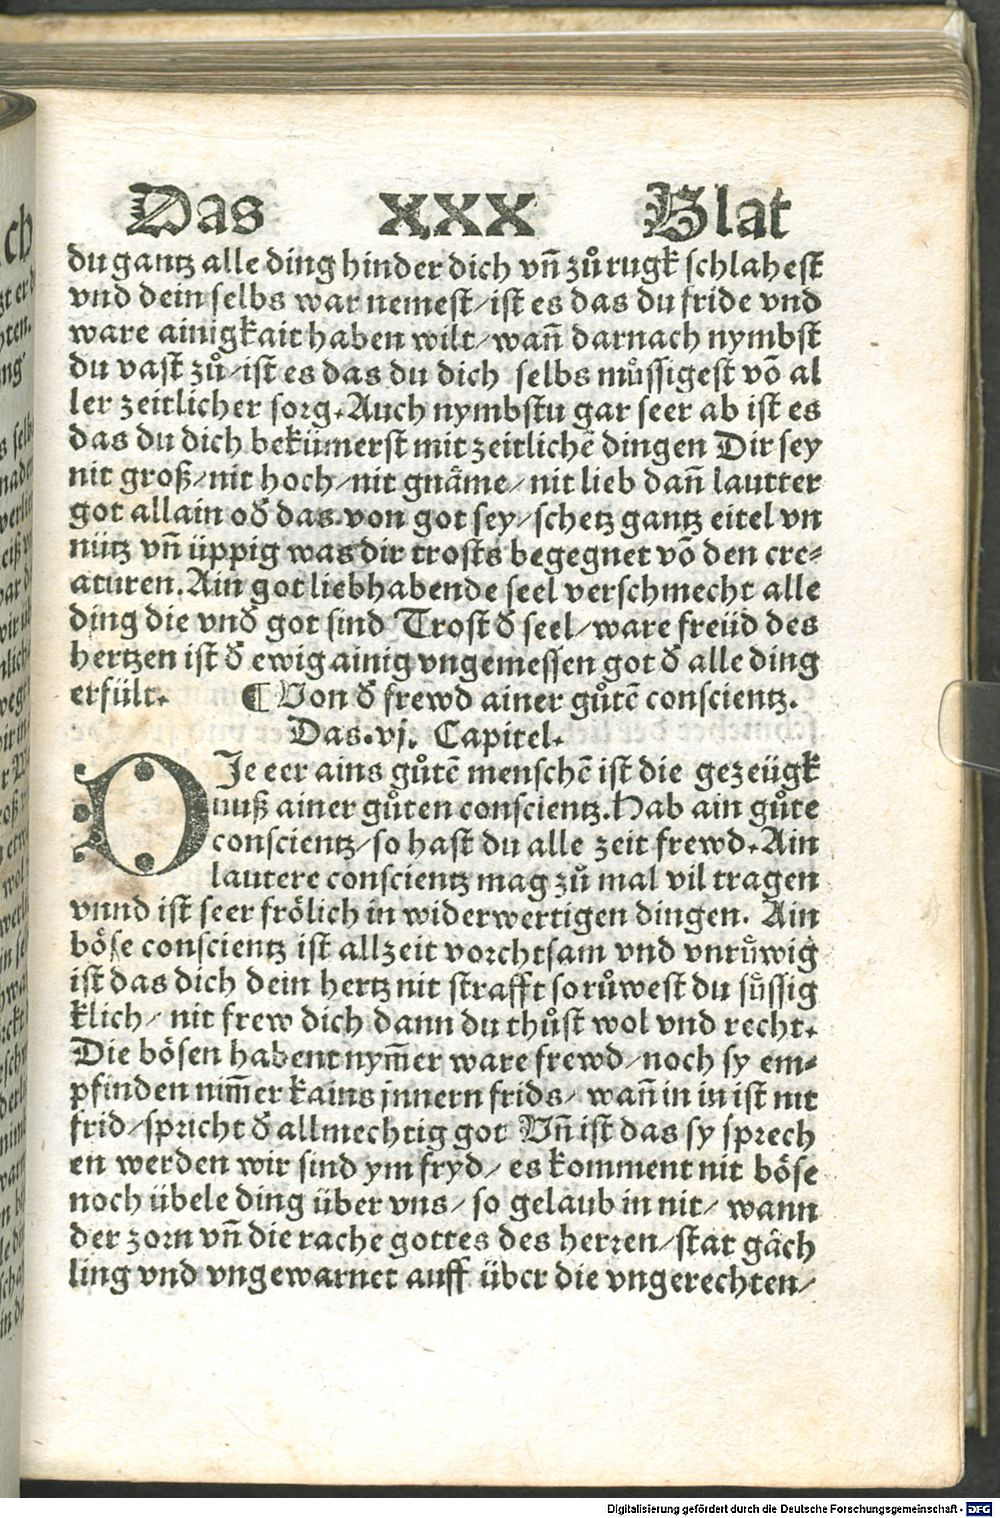 Das XXX Blat
du gantz alle ding hinder dich vñ zůrugk schlahest
vnd dein selbs war nemest/ist es das du fride vnd
ware ainigkait haben wilt/wañ darnach nymbst
du vast zů/ist es das du dich selbs müssigest võ al
ler zeitlicher sorg.Auch nymbstu gar seer ab ist es
das du dich bekümerst mit zeitlichẽ dingen Dir sey
nit groß/nit hoch/nit gnäme/nit lieb dañ lautter
got allain oð das von got sey/schetz gantz eitel vn
nütz vñ üppig was dir trosts begegnet võ den cre⸗
aturen.Ain got liebhabende seel verschmecht alle
ding die vnð got sind Trost ð seel/ware freüd des
hertzen ist ð ewig ainig vngemessen got ð alle ding
erfült. ¶Von ð frewd ainer gůtẽ conscientz.
Das.vj. Capitel.
DJe eer ains gůtẽ menschẽ ist die gezeügk
nuß ainer gůten conscientz.Hab ain gůte
conscientz/so hast du alle zeit frewd.Ain
lautere conscientz mag zů mal vil tragen
vnnd ist seer frölich in widerwertigen dingen. Ain
böse conscientz ist allzeit vorchtsam vnd vnrůwig
ist das dich dein hertz nit strafft so růwest du süssig
klich/ nit frew dich dann du thůst wol vnd recht.
Die bösen habent nym̃er ware frewd/noch sy em⸗
pfinden nim̃er kains jnnern frids/ wañ in in ist nit
frid/spricht ð allmechtig got Vñ ist das sy sprech
en werden wir sind ym fryd/ es komment nit böse
noch übele ding über vns/ so gelaub in nit/ wann
der zorn vñ die rache gottes des herren/stat gäch
ling vnd vngewarnet auff über die vngerechten/
Digitalisierung gefördert durch die Deutsche Forschungsgemeinschaft - DFG